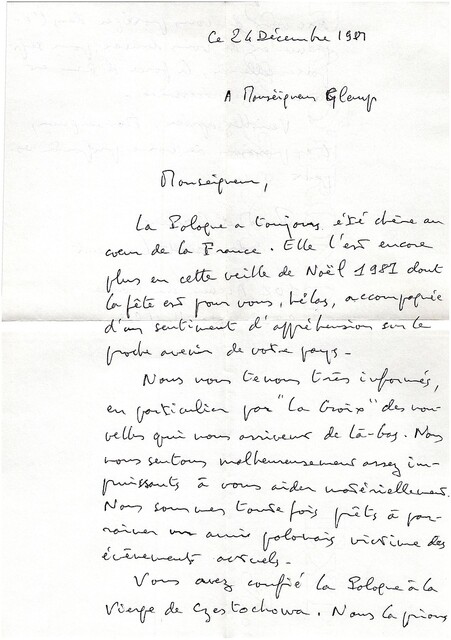 Ce 24 Décembre 1981
A Monseigneur Glemp
Monseigneur,
La Pologne a toujours été chère au
coeur de la France. Elle l'est encore
plus en cette veille de Noël 1981 dont
la fête est pour vous, hélas, accompagnée
d'un sentiment d'appréhension sur le
proche avenir de votre pays -
Nous nous tenons très informés,
en particulier par "La Croix" des nou-
velles qui nous arrivent de là-bas. Nous
nous sentons malheureusement assez im-
puissants à vous aider matériellement.
Nous sommes toutefois prêts à par-
rainer un ami polonais victime des
évènements actuels -
Vous avez confié la Pologne à la
Vierge de Czestochowa. Nous la prions